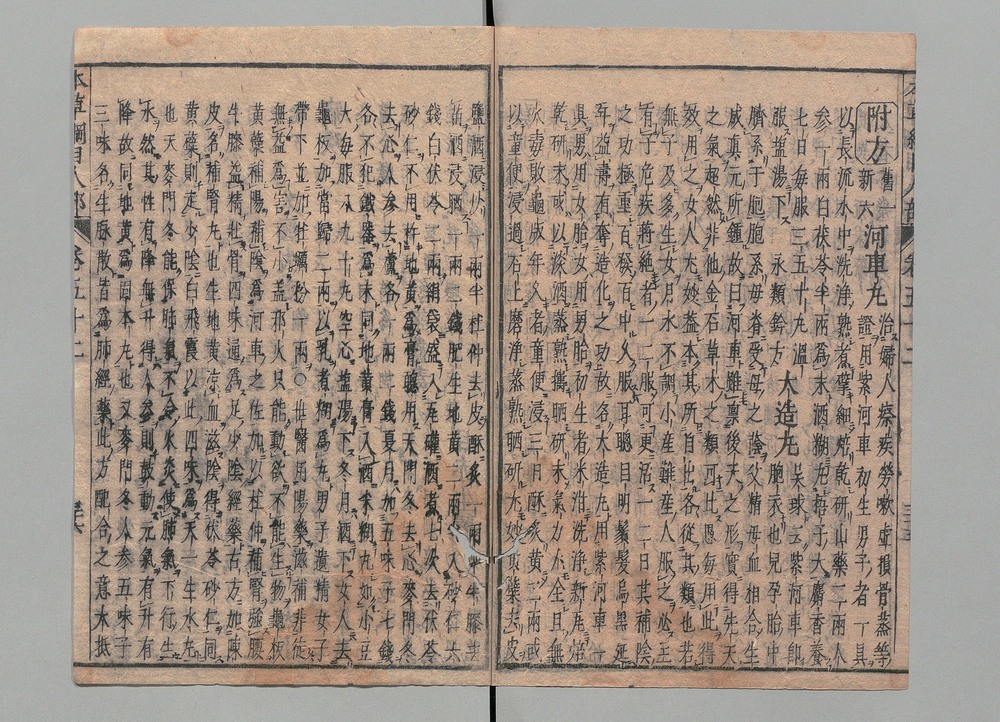 附方 舊一新六 河車丸 治婦人瘵疾勞嗽虛損骨蒸等證用紫河車初生男子者一具
以長流水中洗淨熟煮擘細焙乾研山藥二兩人
參一兩白茯苓半兩爲末酒糊丸梧子大麝香養
七日每服三五十丸溫
服鹽湯下 永類鈐方 大造丸 吳球云紫河車即胞衣也兒孕胎中
臍系于胞胞系母脊受母之蔭父精母血相合生
成眞元所鍾故曰河車雖禀後天之形實得先天
之氣超然非他金石草木之類可比愚每用此得
效用之女人尤妙蓋本其所自出各從其類也若
無子及多生女月水不調小產難產人服之必主
有子危疾將絕者一二服可更活一二日其補陰
之功極重百發百中久服耳聰目明鬚髮烏黑延
年益壽有奪造化之功故名大造丸用紫河車一
具男用女胎女用男胎初生者米泔洗淨新瓦焙
乾研末或以淡酒蒸熟搗晒研末氣力尤全且無
火毒敗龜版年久者童便浸三日酥炙黃二兩或
以童便浸過石上磨淨蒸熟晒研尤妙黃蘗去皮
鹽酒浸炒一兩半杜仲去皮酥炙一兩半牛膝去
苗酒浸晒一兩二錢肥生地黃二兩半入砂仁六
錢白茯苓二兩絹袋盛入瓦罐酒煮七次去茯苓
砂仁不用杵地黃爲膏聽用天門冬去心麥門冬
去心人參去蘆各一兩二錢夏月加五味子七錢
各不犯鐵器爲末同地黃膏入酒米糊丸如小豆
大每服八九十丸空心鹽湯下冬月酒下女人去
龜板加當歸二兩以乳煮糊爲丸男子遺精女子
帶下並加牡蠣粉一兩〇世醫用陽藥滋補非徒
無益爲害不小蓋邪火只能動欲不能生物龜板
黃蘗補陽補陰爲河車之佐加以杜仲補腎強腰
牛膝益精壯骨四味通爲足少陰經藥古方加陳
皮名補腎丸也生地黃凉血滋陰得茯苓砂仁同
黃蘗則走少陰白飛霞以此四味爲天一生水丸
也天麥門冬能保肺氣不令火炎使肺氣下行生
水然其性有降無升得人參則鼓動元氣有升有
降故同地黃爲固本丸也又麥門冬人參五味子
三味名生脉散皆爲肺經藥此方配合之意大抵